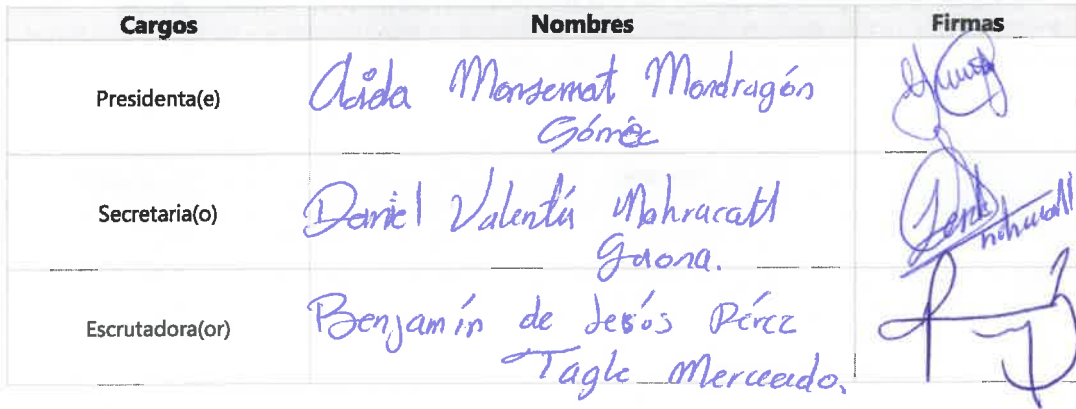 Cargos Nombres Firmas
Presidenta(e) Aaida Monserrat Mondragón
Gómez
Secretaria(o) Daniel Valentín
Gaona.
Escrutadora(or) Benjamín de Jesús Pérez
Tagle Merceedo.